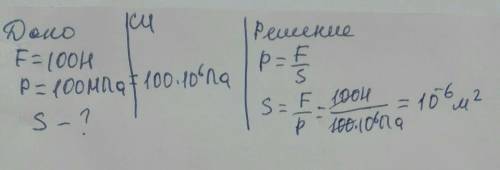 Дано
СИ
F=100Н
P=100МПа=100·10⁶Па
S – ?
Решение
P=F/S
S=F/P=100Н/100·10⁶Па=10⁻⁶м²